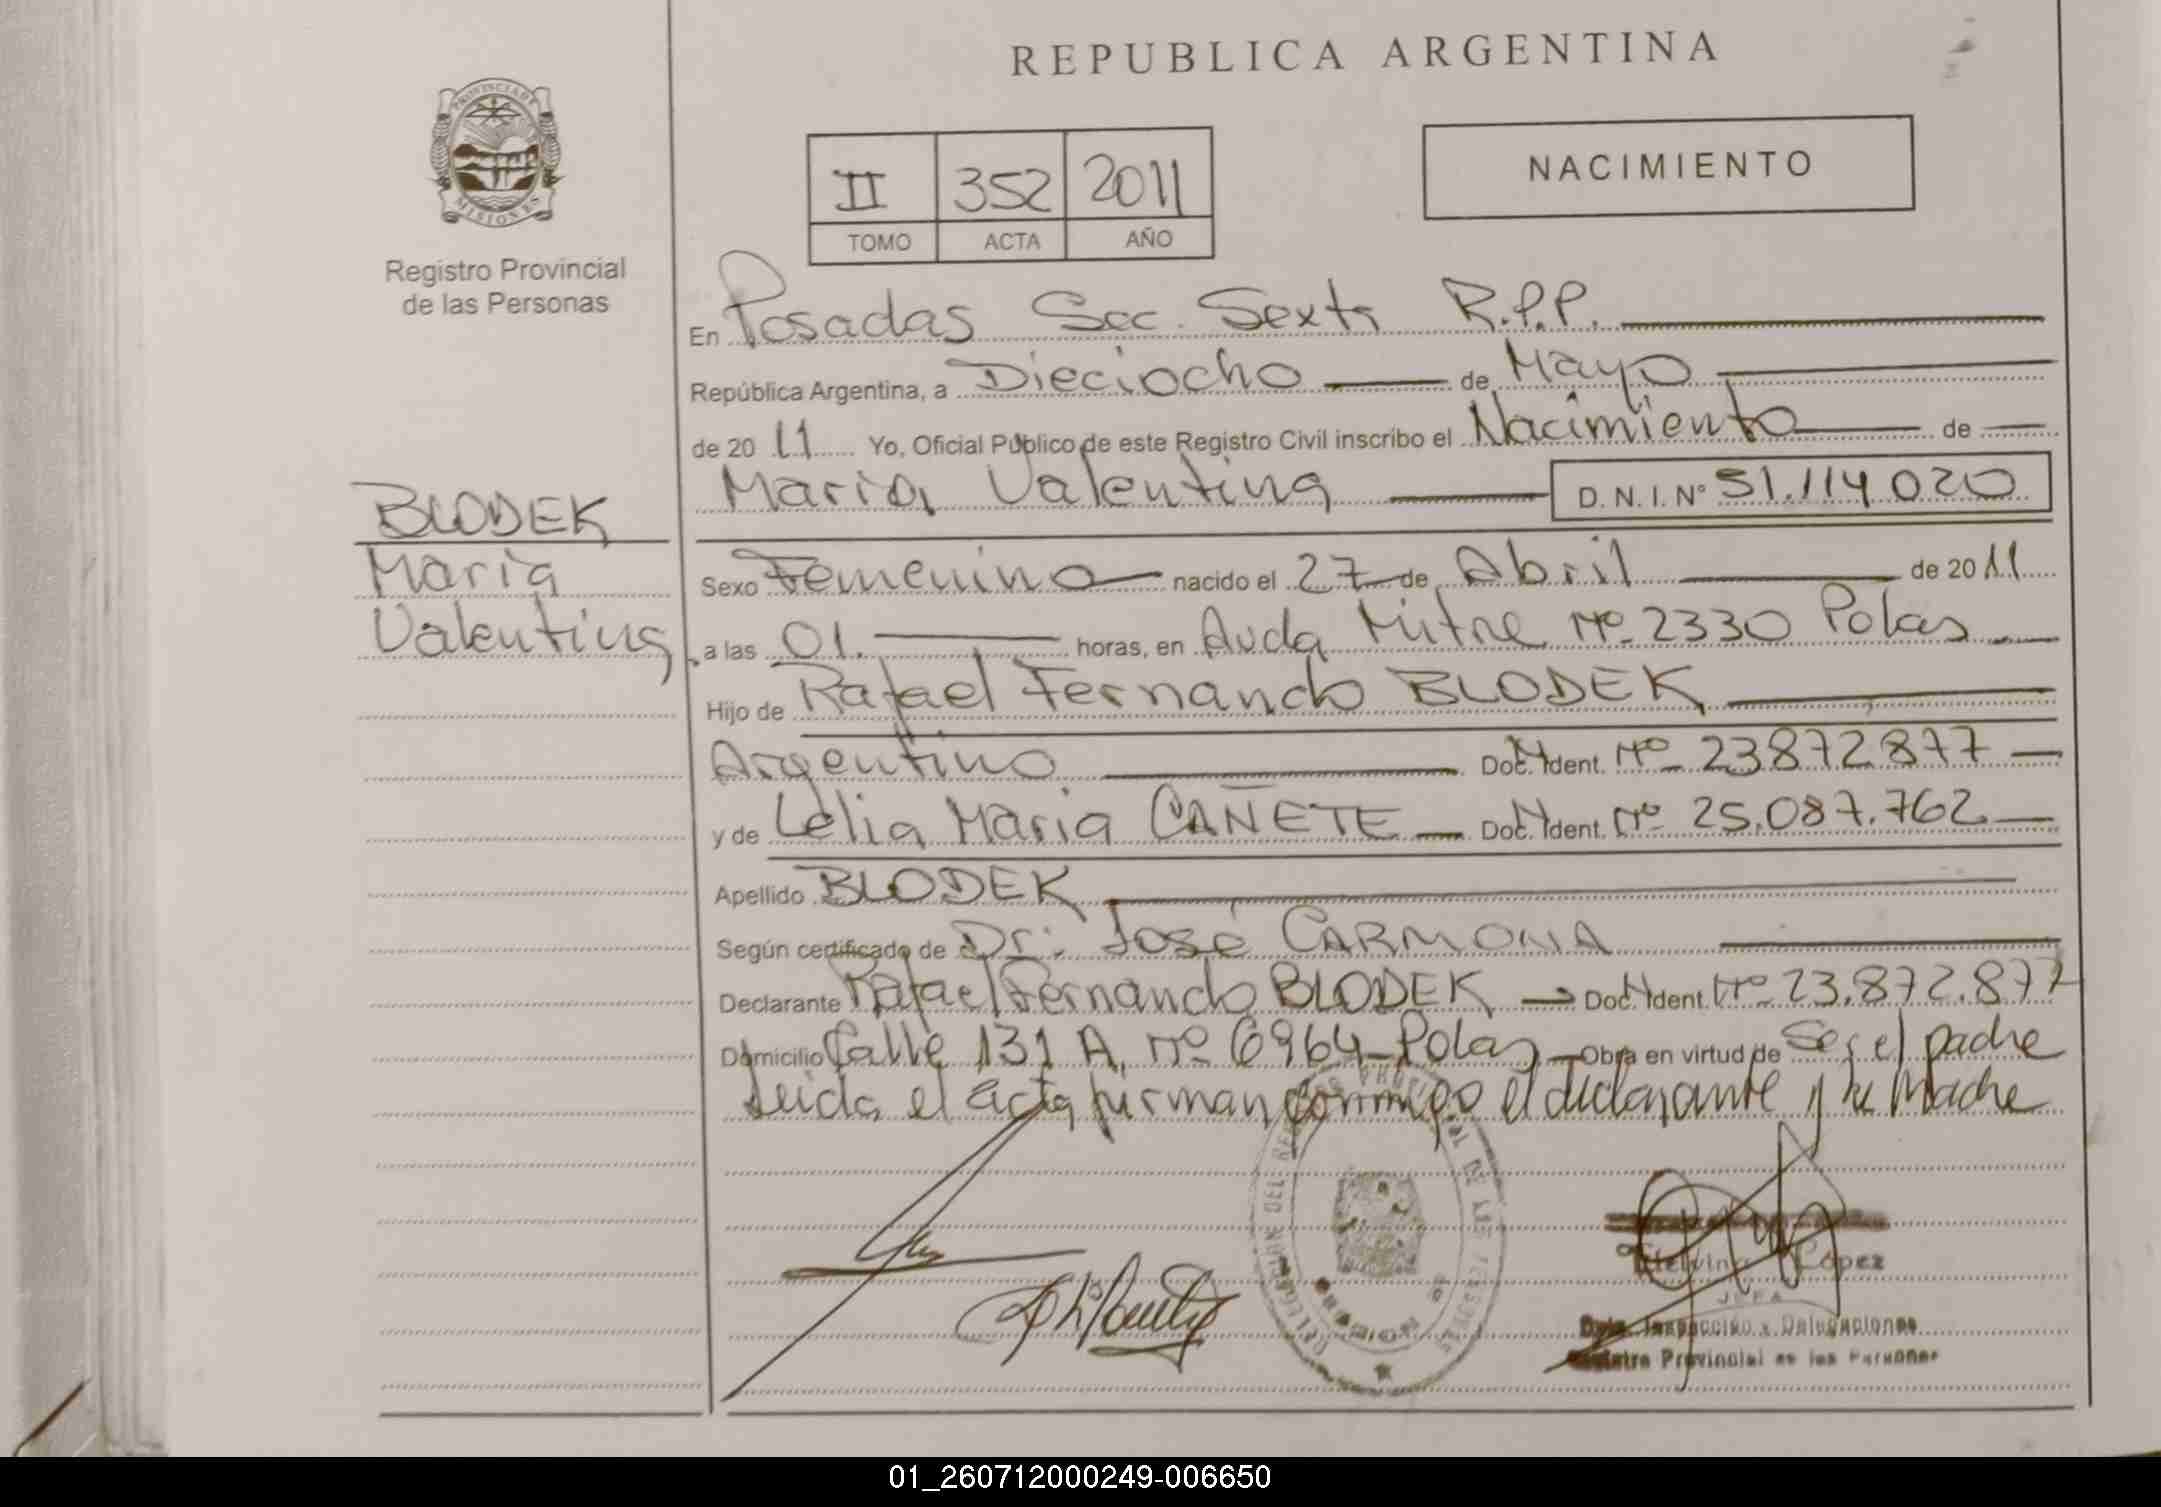 REPUBLICA ARGENTINA
PROVINCIA DE MISIONES
Registro Provincial
de las Personas
II 352 2011
TOMO ACTA AÑO
NACIMIENTO
En Posadas Sec. Sexta R.P.P.
República Argentina, a Dieciocho de Mayo
de 2011 Yo, Oficial Público de este Registro Civil inscribo el Nacimiento de
María Valentina D.N.I.Nº 51.114.020
BLODEK
María
Valentina
Sexo Femenino nacido el 27 de Abril de 2011
a las 01. horas, en Avda Mitre Nº 2330 Pdas
Hijo de Rafael Fernando BLODEK
Argentino Doc. Ident. Nº 23.872.877
y de Lelia María CAÑETE Doc. Ident. Nº 25.087.762
Apellido BLODEK
Según certificado de Dr. José CARMONA
Declarante Rafael Fernando BLODEK Doc. Ident. Nº 23.872.877
Domicilio Calle 131 A, nº 6964 Pdas Obra en virtud de Ser el padre
Leida el acta firman conmigo el declarante y la Madre
López
JEFA
Inspección y Delegaciones
Registro Provincial de las Personas
01_260712000249-006650